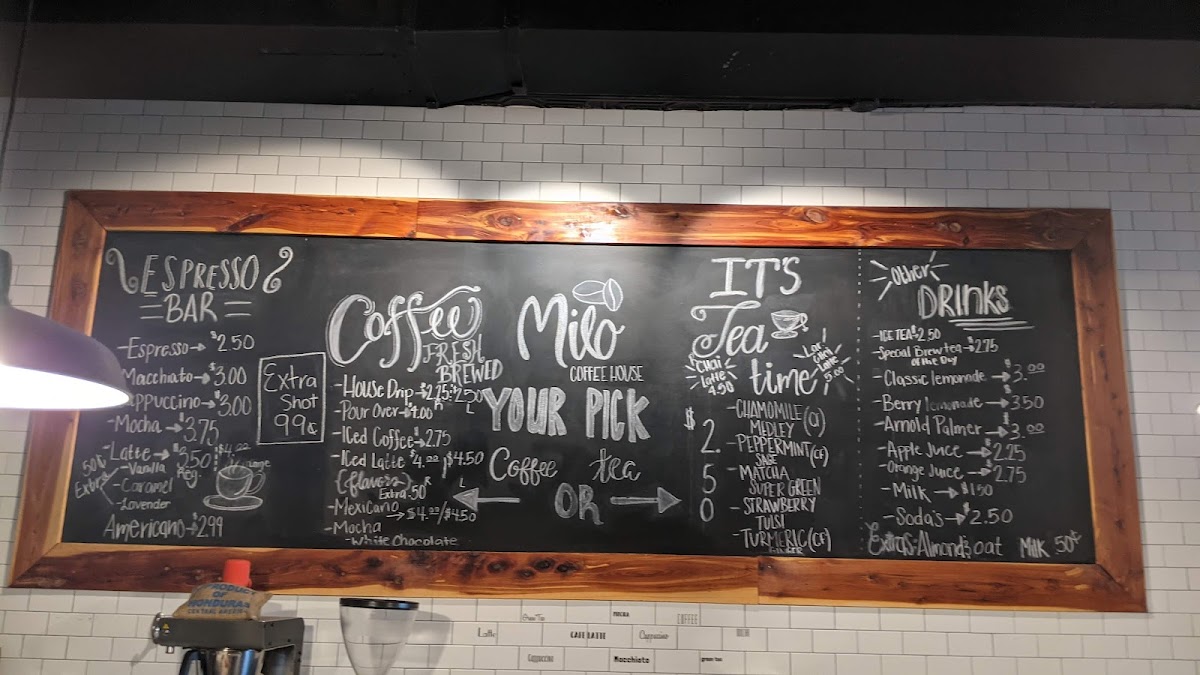 ESPRESSO
BAR
-Espresso→$2.50
Macchiato→$3.00
appuccino→$3.00
-Mocha→$3.75
-Latte→$3.50 Reg. $4.00 Large
50¢ Extra
-Vanilla
-Caramel
-Lavender
Americano→$2.99
Extra
Shot
99¢
Coffee
FRESH
BREWED
-House Drip→$2.25 R $2.50 L
-Pour Over→$4.00
-Iced Coffee→$2.75
-Iced Latte $4.00 R $4.50 L
(flavors)
Extra .50
-Mexicano→$4.00/$4.50
-Mocha
-White Chocolate
Milo
COFFEE HOUSE
YOUR PICK
Coffee tea
OR
IT'S
Tea
time
Chai
Latte
4.50
5.00
$2.50
-CHAMOMILE(CF)
MEDLEY
-PEPPERMINT(CF)
SAGE
-MATCHA
SUPER GREEN
-STRAWBERRY
TULSI
-TURMERIC(CF)
GINGER
Other
DRINKS
-ICE TEA→$2.50
-Special Brew tea→$2.75
OF the Day
-Classic lemonade→$3.00
-Berry lemonade→3.50
-Arnold Palmer→$3.00
-Apple Juice→$2.25
-Orange Juice→$2.75
-Milk→$1.50
-Soda's→$2.50
Extras-Almond & oat Milk 50¢
PRODUCT
OF
HONDURAS
CENTRAL AMERICA
Green Tea MOCHA COFFEE
Latte CAFE LATTE Cappuccino
Cappuccino Macchiato green tea